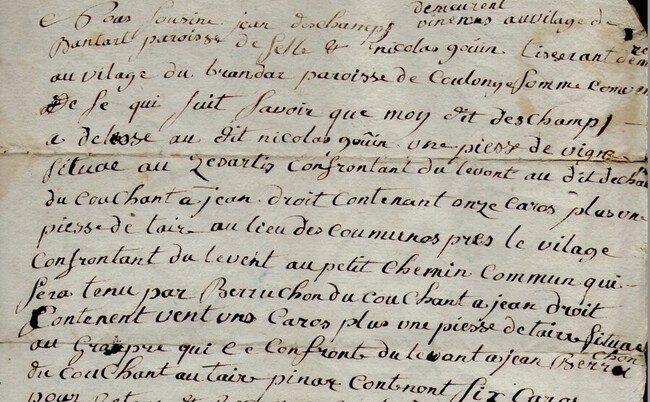 demeurent
Nous sousine jean deschamps vinerons au vilage de
Bantart paroisse de selle et nicolas goüin tisserant dem
au vilage du brandar paroisse de Coulonge somme conv
de se qui suit savoir que moy dit deschamp
a delesse au dit nicolas goüin une piesse de vigne
situae au Lesartis Confrontant du levent au dit dechan
du couchant a jean droit contenant onze Caros plus une
piesse de taire au lieu des coumunos pres le vilage
Confrontant du levent au petit Chemin Commun qui
sera tenu par Berruchon du couchant a jean droit
Contenent vent uns Caros plus une piesse de taire situae
au Grospre qui ce Confronte du levant a jean Berru
chon
du couchant au taire pinar contenont six Caros
pour